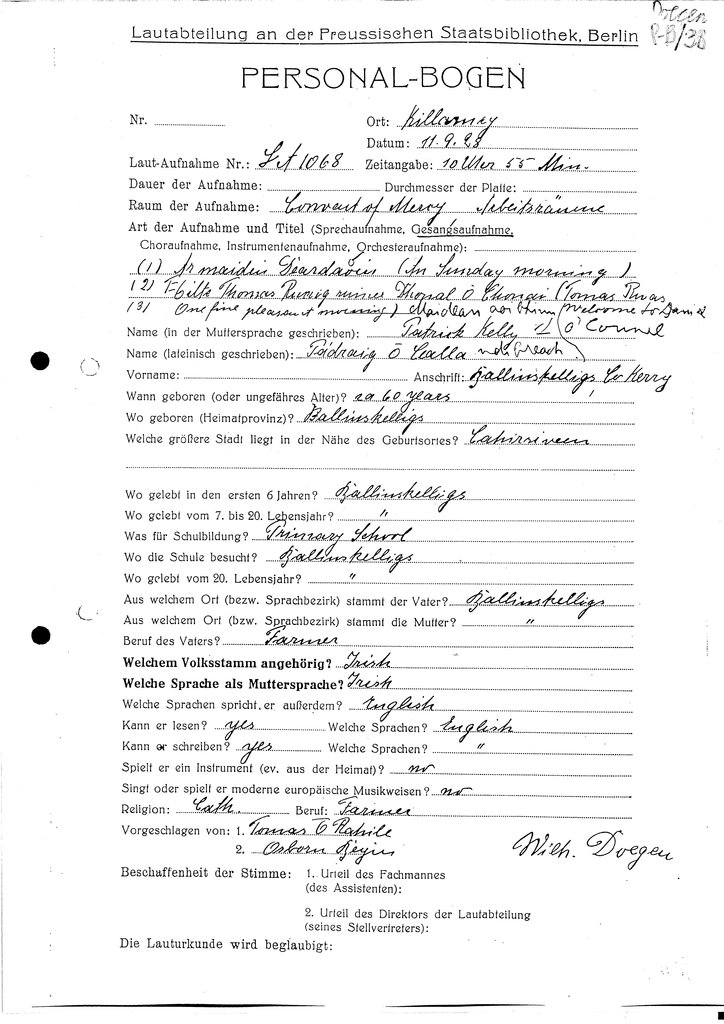 Doegen
P-B/38
Lautabteilung an der Preussischen Staatsbibliothek, Berlin
PERSONAL-BOGEN
Nr. Ort: Killarney
Datum: 11.9.28
Laut-Aufnahme Nr.: LA 1068 Zeitangabe: 10 Uhr 55 Min.
Dauer der Aufnahme: Durchmesser der Platte:
Raum der Aufnahme: Convent of Mercy Arbeitsräume
Art der Aufnahme und Titel (Sprechaufnahme, Gesangsaufnahme,
Choraufnahme, Instrumentenaufnahme, Orchesteraufnahme):
(1) Ar maidin Deardaoin (On Sunday morning)
(2) Thomas Ó (Tomas Ruas
(3) One fine pleasant morning) Maidean Welcome to Daniel
Name (in der Muttersprache geschrieben): Patrick Kelly O'Connel
Name (lateinisch geschrieben): Pádraig Ó Ealla
Vorname: Anschrift: Ballinskelligs, Co Kerry
Wann geboren (oder ungefähres Alter)? ca 60 years
Wo geboren (Heimatprovinz)? Ballinskelligs
Welche größere Stadt liegt in der Nähe des Geburtsortes? Cahirsiveen
Wo gelebt in den ersten 6 Jahren? Ballinskelligs
Wo gelebt vom 7. bis 20. Lebensjahr? "
Was für Schulbildung? Primary School
Wo die Schule besucht? Ballinskelligs
Wo gelebt vom 20. Lebensjahr? "
Aus welchem Ort (bezw. Sprachbezirk) stammt der Vater? Ballinskelligs
Aus welchem Ort (bezw. Sprachbezirk) stammt die Mutter? "
Beruf des Vaters? Farmer
Welchem Volksstamm angehörig? Irish
Welche Sprache als Muttersprache? Irish
Welche Sprachen spricht er außerdem? English
Kann er lesen? yes Welche Sprachen? English
Kann er schreiben? yes Welche Sprachen? "
Spielt er ein Instrument (ev. aus der Heimat)? no
Singt oder spielt er moderne europäische Musikweisen? no
Religion: Cath. Beruf: Farmer
Vorgeschlagen von: 1. Tomas O Rahile
2. Osborn Bergin
Wilh. Doegen
Beschaffenheit der Stimme: 1. Urteil des Fachmannes
(des Assistenten):
2. Urteil des Direktors der Lautabteilung
(seines Stellvertreters):
Die Lauturkunde wird beglaubigt: